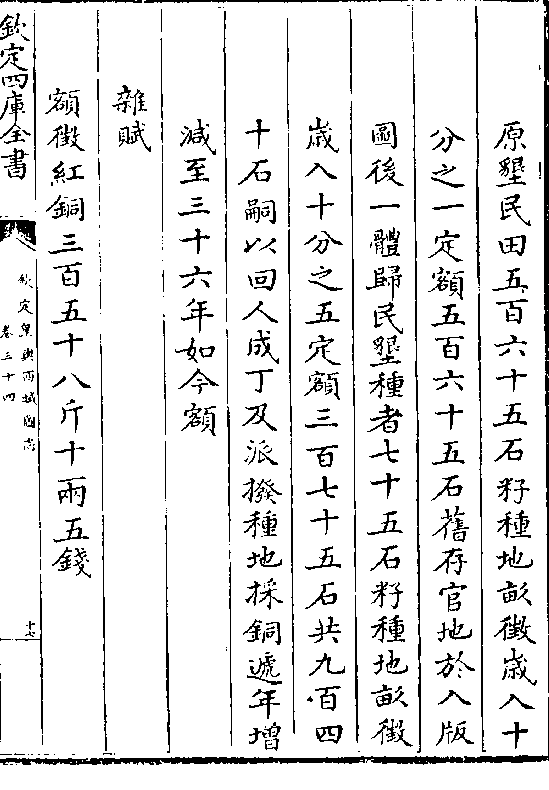 原墾民田五百六十五石籽種地畝徵歲入十
分之一定額五百六十五石舊存官地於入版
圖後一體歸民墾種者七十五石籽種地畝徵
歲入十分之五定額三百七十五石共九百四
十石嗣以回人成丁及派撥種地採銅遞年增
減至三十六年如今額
雜賦
額徵紅銅三百五十八斤十兩五錢
欽定四庫全書
欽定皇輿西域圖志
卷三十四
十七